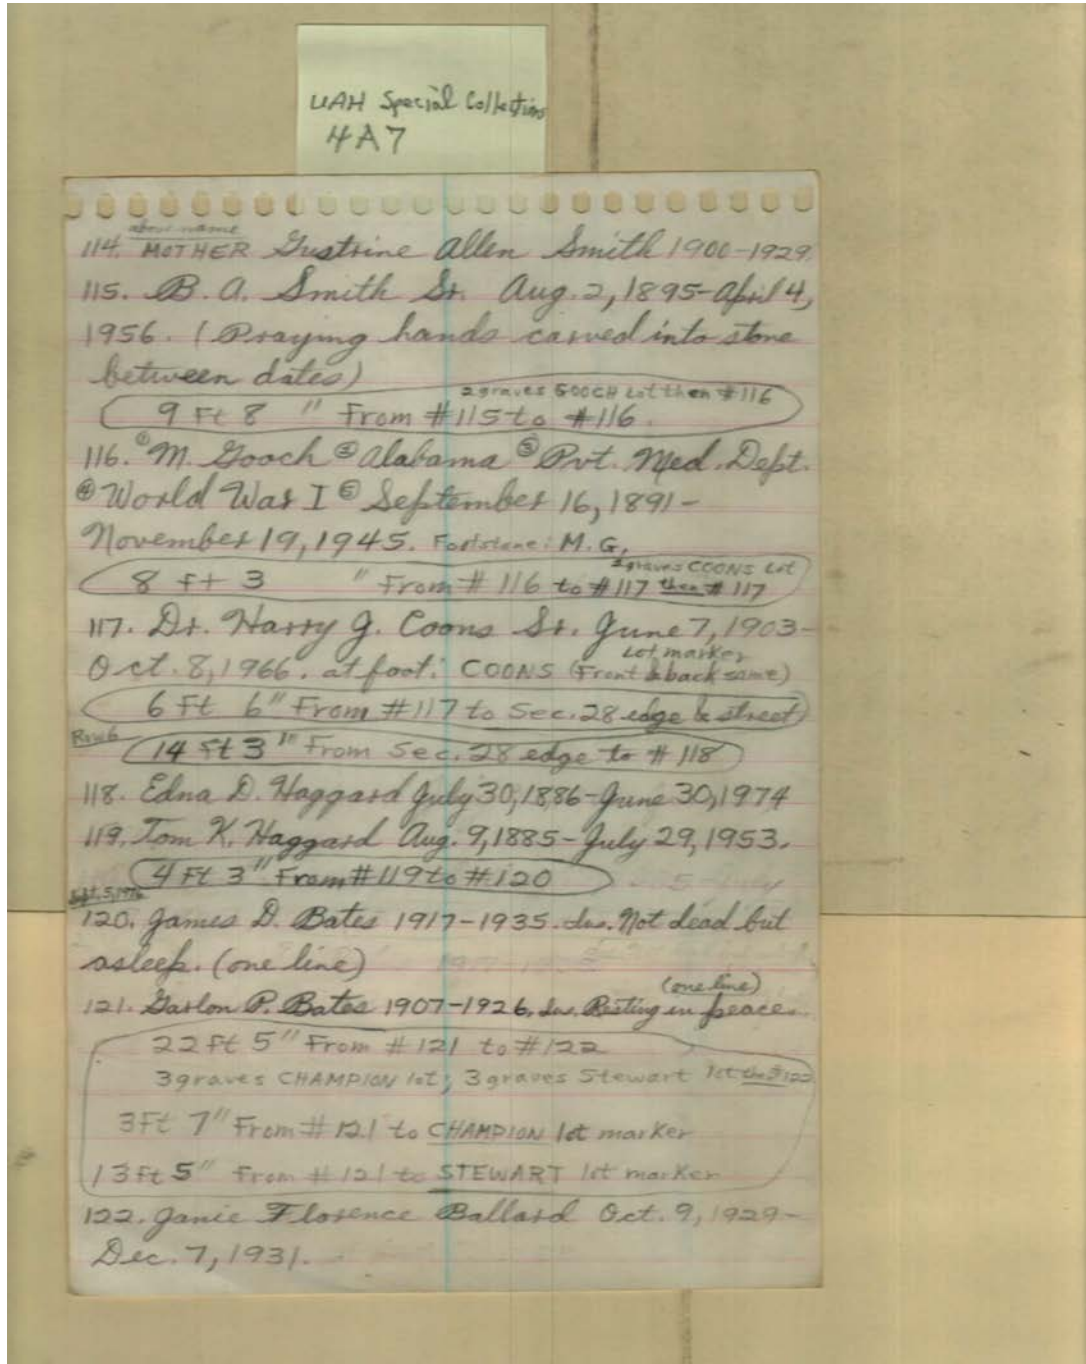 UAH Special Collections
4A7
above name
114. MOTHER Gustrine Allen Smith 1900-1929.
115. B. A. Smith Sr. Aug. 2, 1895-April 4,
1956. (Praying hands carved into stone
between dates)
2 graves GOOCH Lot then #116
9 Ft 8 " From #115 to #116.
116. ① M. Gooch ② Alabama ③ Pvt. Med. Dept.
④ World War I ⑤ September 16, 1891-
November 19, 1945. Footstone: M. G.
2 graves COONS Lot
8 ft 3 " From # 116 to #117 then # 117
117. Dr. Harry J. Coons Sr. June 7, 1903-
Lot marker
Oct. 8, 1966. at foot: COONS (Front & back same)
6 Ft 6" From #117 to Sec. 28 edge & street
Row 6
14 Ft 3" From Sec. 28 edge to # 118
118. Edna D. Haggard July 30, 1886-June 30, 1974
119. Tom K. Haggard Aug. 9, 1885-July 29, 1953.
4 Ft 3" From #119 to #120
Sept. 5, 1976
120. James D. Bates 1917-1935. Ins. Not dead but
asleep. (one line)
(one line)
121. Garlon P. Bates 1907-1926. Ins. Resting in peace.
22 Ft 5" From #121 to #122
3 graves CHAMPION lot; 3 graves Stewart lot then #122
3 Ft 7" From #121 to CHAMPION lot marker
13 Ft 5" From #121 to STEWART lot marker
122. Janie Florence Ballard Oct. 9, 1929-
Dec. 7, 1931.